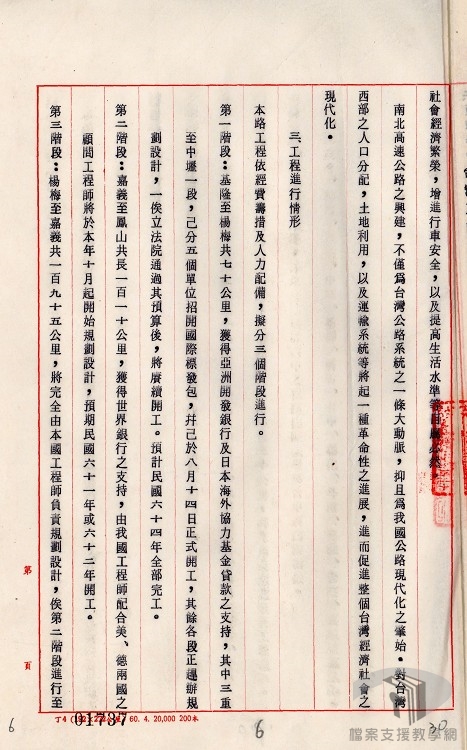 社會經濟繁榮，增進行車安全，以及提高生活水準等自屬必然。
南北高速公路之興建，不僅爲台灣公路系統之一條大動脈，抑且爲我國公路現代化之肇始。對台灣
西部之人口分配，土地利用，以及運輸系統等將起一種革命性之進展，進而促進整個台灣經濟社會之
現代化。
三、工程進行情形
本路工程依經費籌措及人力配備，擬分三個階段進行。
第一階段：基隆至楊梅共七十公里，獲得亞洲開發銀行及日本海外協力基金貸款之支持，其中三重
至中壢一段，已分五個單位招開國際標發包，幷已於八月十四日正式開工，其餘各段正趕辦規
劃設計，一俟立法院通過其預算後，將賡續開工。預計民國六十四年全部完工。
第二階段：嘉義至鳳山共長一百一十公里，獲得世界銀行之支持，由我國工程師配合美、德兩國之
顧問工程師將於本年十月起開始規劃設計，預期民國六十一年或六十二年開工。
第三階段：楊梅至嘉義共一百九十五公里，將完全由本國工程師負責規劃設計，俟第二階段進行至
第 頁
60. 4. 20,000 200本
01737
6
6
30
檔案支援教學網